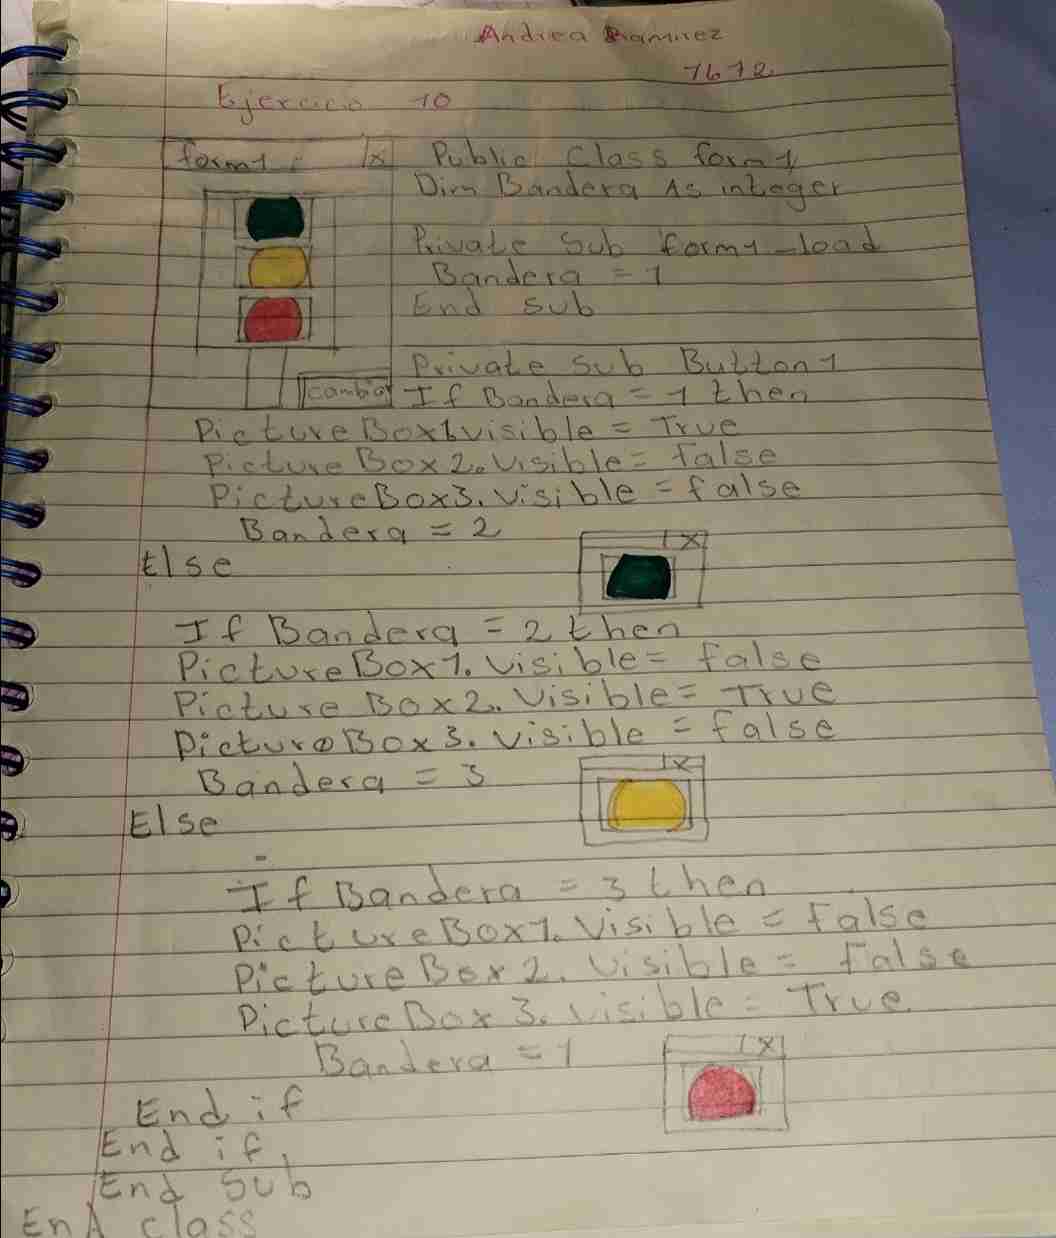 Andrea Ramirez
1672
Ejercicio 10
form1 x
Public Class form1
Dim Bandera As integer
Private Sub form1_load
Bandera = 1
End sub
Private Sub Button1
cambiar
If Bandera = 1 then
PictureBox1.visible = True
PictureBox2.Visible = false
PictureBox3.Visible = false
Bandera = 2
x
Else
If Bandera = 2 then
PictureBox1.Visible = false
Picture Box2.Visible = True
PictureBox3.Visible = false
Bandera = 3
x
Else
If Bandera = 3 then
PictureBox1.Visible = False
PictureBox2.Visible = false
PictureBox3.Visible = True
Bandera = 1
x
End if
End if
End Sub
End class